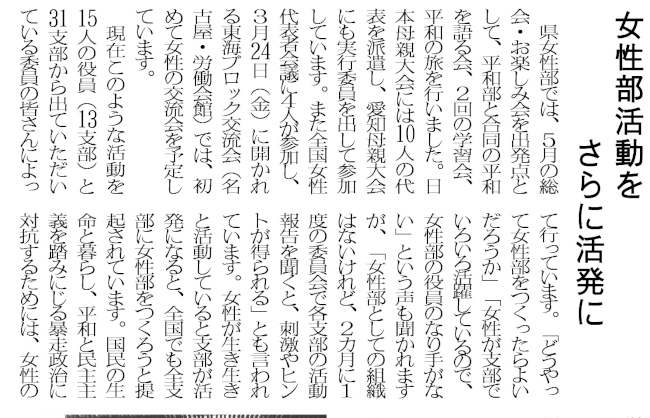 女性部活動を
さらに活発に
県女性部では、５月の総
会・お楽しみ会を出発点と
して、平和部と合同の平和
を語る会、２回の学習会、
平和の旅を行いました。日
本母親大会には10人の代
表を派遣し、愛知母親大会
にも実行委員を出して参加
しています。また全国女性
代表者会議に４人が参加し、
３月24日（金）に開かれ
る東海ブロック交流会（名
古屋・労働会館）では、初
めて女性の交流会を予定し
ています。
現在このような活動を
15人の役員（13支部）と
31支部から出ていただい
ている委員の皆さんによっ
て行っています。「どうやっ
て女性部をつくったらよい
だろうか」「女性が支部で
いろいろ活躍しているので、
女性部の役員のなり手がな
い」という声も聞かれます
が、「女性部としての組織
はないけれど、２カ月に１
度の委員会で各支部の活動
報告を聞くと、刺激やヒン
トが得られる」とも言われ
ています。女性が生き生き
と活動していると支部が活
発になると、全国でも全支
部に女性部をつくろうと提
起されています。国民の生
命と暮らし、平和と民主主
義を踏みにじる暴走政治に
対抗するためには、女性の